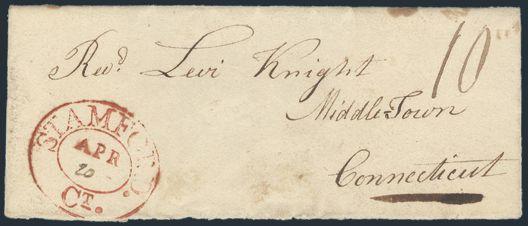 10
Revd. Levi Knight
Middle-Town
Connecticut
STAMFORD
APR
20
CT.